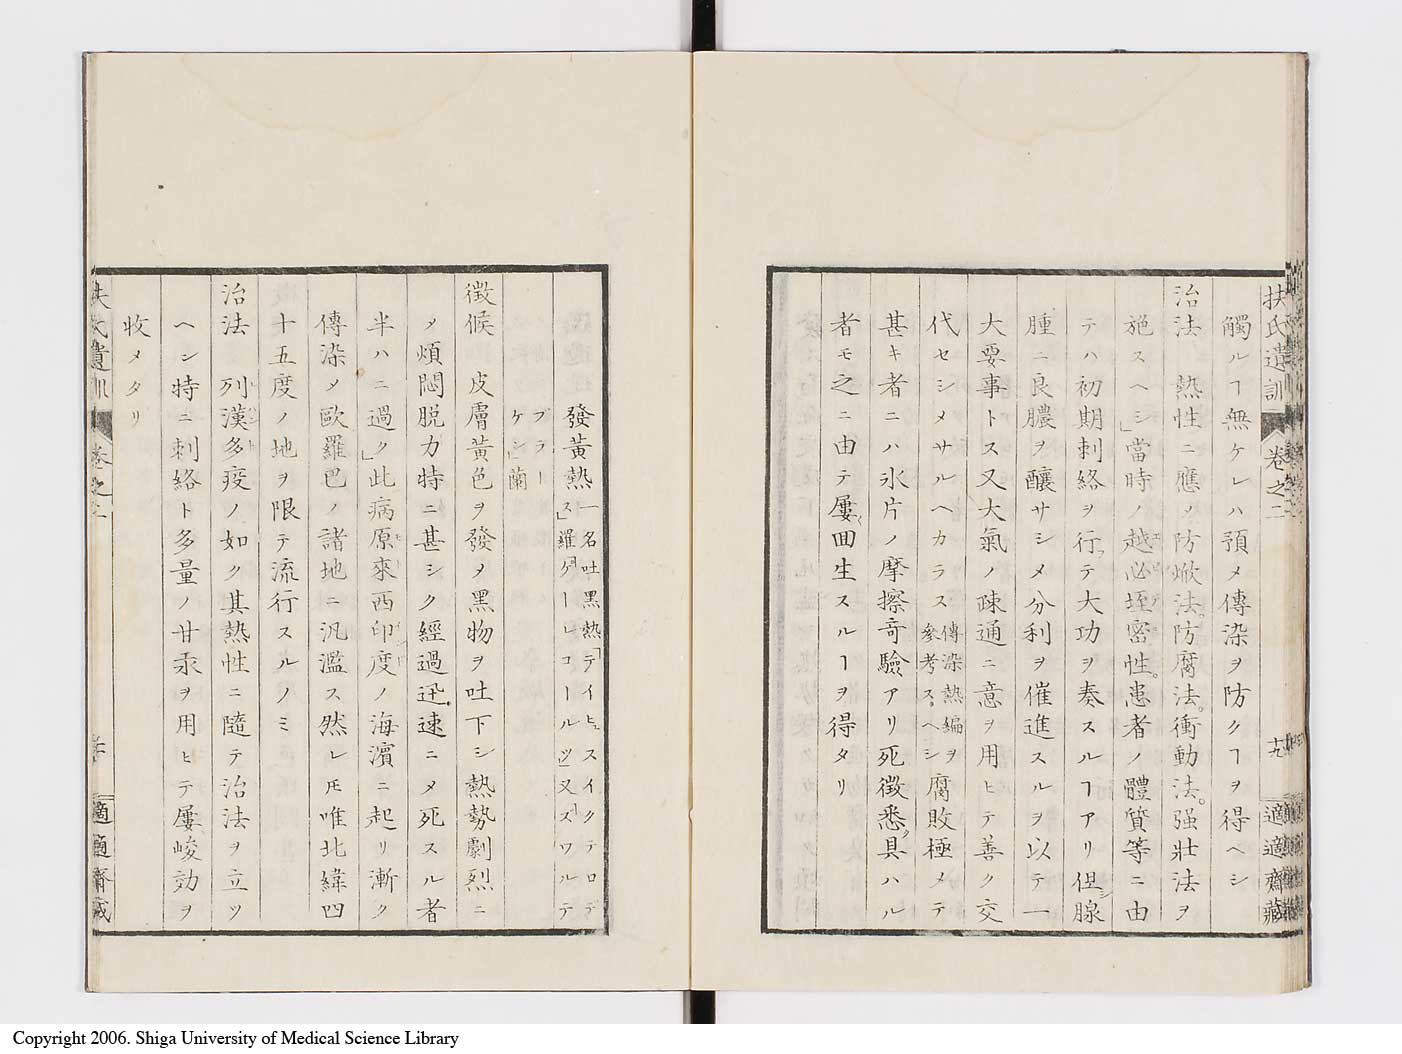 扶氏遺訓 卷之二 十九 適適齋藏
觸ルヿ無ケレハ預メ傳染ヲ防クヿヲ得ヘシ
治法 熱性ニ應メ防焮法。防腐法。衝動法。强壯法ヲ
施スヘシ」當時ノ越必垤密性。患者ノ體質等ニ由
テハ初期刺絡ヲ行テ大功ヲ奏スルヿアリ但腺
腫ニ良膿ヲ釀サシメ分利ヲ催進スルヲ以テ一
大要事トス又大氣ノ疎通ニ意ヲ用ヒテ善ク交
代セシメサルヘカラス傳染熱編ヲ參考スヘシ腐敗極メテ
甚キ者ニハ氷片ノ摩擦奇驗アリ死徵悉ク具ハル
者モ之ニ由テ屢回生スルヿヲ得タリ
發黃熱一名吐黑熱「テイヒュスイクテロデス」羅「ゲーレコールツ」又「ズワルテ
ブラーケン」蘭
徵候 皮膚黃色ヲ發メ黑物ヲ吐下シ熱勢劇烈ニ
メ煩悶脫力特ニ甚シク經過迅速ニメ死スル者
半ハニ過ク」此病原來西印度ノ海濱ニ起リ漸ク
傳染メ歐羅巴ノ諸地ニ汎濫ス然レ𪜈唯北緯四
十五度ノ地ヲ限テ流行スルノミ
治法 列漢多疫ノ如ク其熱性ニ隨テ治法ヲ立ツ
ヘシ特ニ刺絡ト多量ノ甘汞ヲ用ヒテ屢峻効ヲ
收メタリ
扶氏遺訓 卷之二 適適齋藏